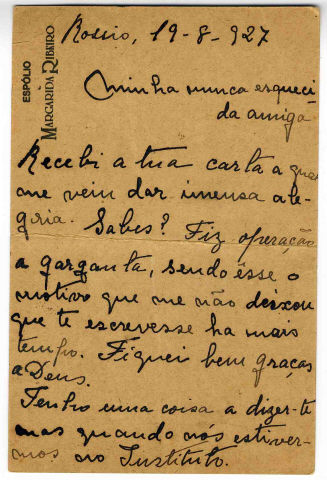 ESPÓLIO
MARGARIDA RIBEIRO
Rossio, 19-8-927
Minha nunca esqueci-
da amiga
Recebi a tua carta a qual
me veim dar imensa ale-
gria. Sabes? Fiz operação
a garganta, sendo êsse o
motivo que me não deixou
que te escrevesse ha mais
tempo. Fiquei bem graças
a Deus.
Tenho uma coisa a dizer-te
mas quando nós estiver-
mos no Instituto.